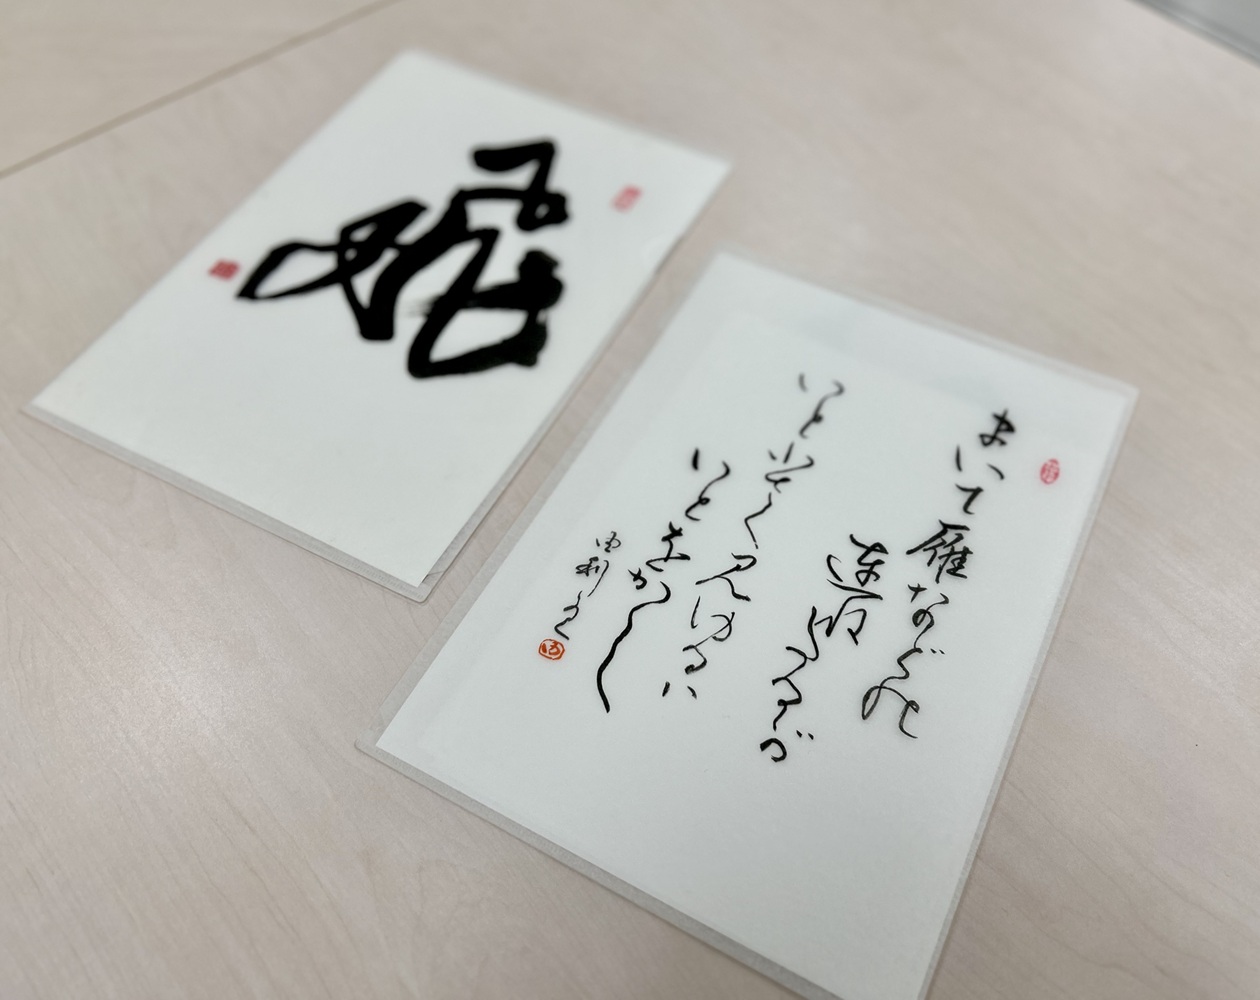 まいて雁などの
連ねたるが
いと小さく見ゆるハ
いとをかし